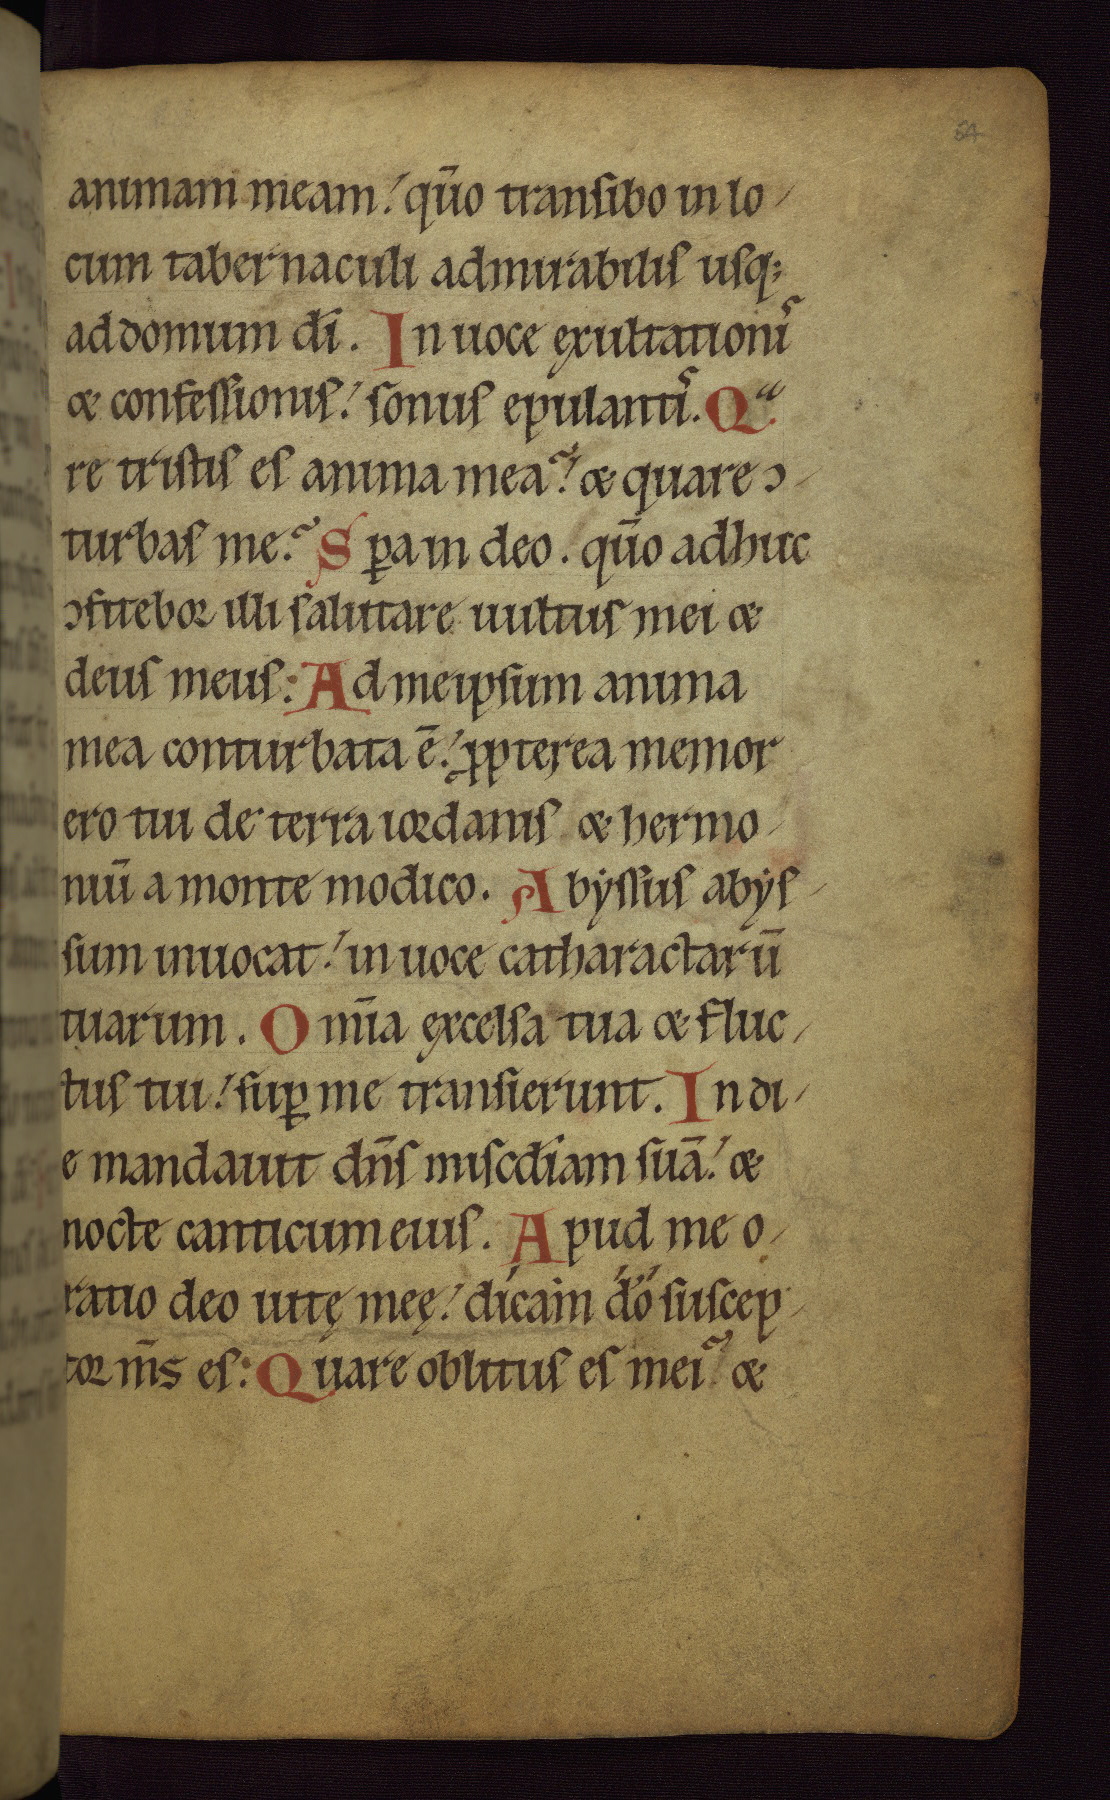 64
animam meam. qūo transibo in lo
cum tabernaculi admirabilis usq;
ad domum dī. In uoce exultationis
& confessionis. sonus epulantis. Qua
re tristis es anima mea? & quare ɔ
turbas me? S ꝑa in deo. qūo adhuc
ɔfitebor illi salutare uultus mei &
deus meus. Ad meipsum anima
mea conturbata ē. ꝓpterea memor
ero tui de terra iordanis & hermo
niū a monte modico. Abyssus abys
sum inuocat. in uoce catharactarū
tuarum. Omīa excelsa tua & fluc
tus tui. suꝑ me transierunt. In di
e mandauit dn̄s miscd̄iam suā. &
nocte canticum eius. Apud me o
ratio deo uitę meę. dicam dō suscep
tor m̄s es. Quare oblitus es mei? &